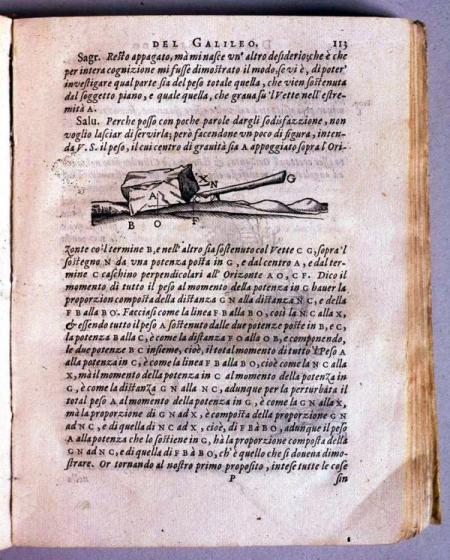 DEL GALILEO. 113
Sagr. Resto appagato, mà mi nasce vn' altro desiderio; che è che
per intera cognizione mi fusse dimostrato il modo, se vi è, di poter'
inuestigare qual parte sia del peso totale quella, che vien sostenuta
dal soggetto piano, e quale quella, che graua su'l Vette nell' estre-
mità A.
Salu. Perche posso con poche parole dargli sodisfazzione, non
voglio lasciar di seruirla; però facendone vn poco di figura, inten-
da V. S. il peso, il cui centro di grauità sia A appoggiato sopra l' Ori-
X N G
A C
B O F
zonte co'l termine B, e nell' altro sia sostenuto col Vette C G, sopra'l
sostegno N da vna potenza posta in G, e dal centro A, e dal ter-
mine C caschino perpendicolari all' Orizonte A O, C F. Dico il
momento di tutto il peso al momento della potenza in G hauer la
proporzion composta della distanza G N alla distanza N C, e della
F B alla B O. Facciasi come la linea F B alla B O, così la N C alla X,
& essendo tutto il peso A sostenuto dalle due potenze poste in B, e C,
la potenza B alla C, è come la distanza F O alla O B, e componendo,
le due potenze B C insieme, cioè, il total momento di tutto'l Peso A
alla potenza in C, è come la linea F B alla B O, cioè come la N C alla
X, mà il momento della potenza in C al momento della potenza in
G, è come la distanza G N alla N C, adunque per la perturbata il
total peso A al momento della potenza in G, è come la G N alla X,
mà la proporzione di G N ad X, è composta della proporzione G N
ad N C, e di quella di N C ad X, cioè, di F B à B O, adunque il peso
A alla potenza che lo sostiene in G, hà la proporzione composta della
G N ad N C, e di quella di F B à B O, ch' è quello che si doueua dimo-
strare. Or tornando al nostro primo proposito, intese tutte le cose
P sin